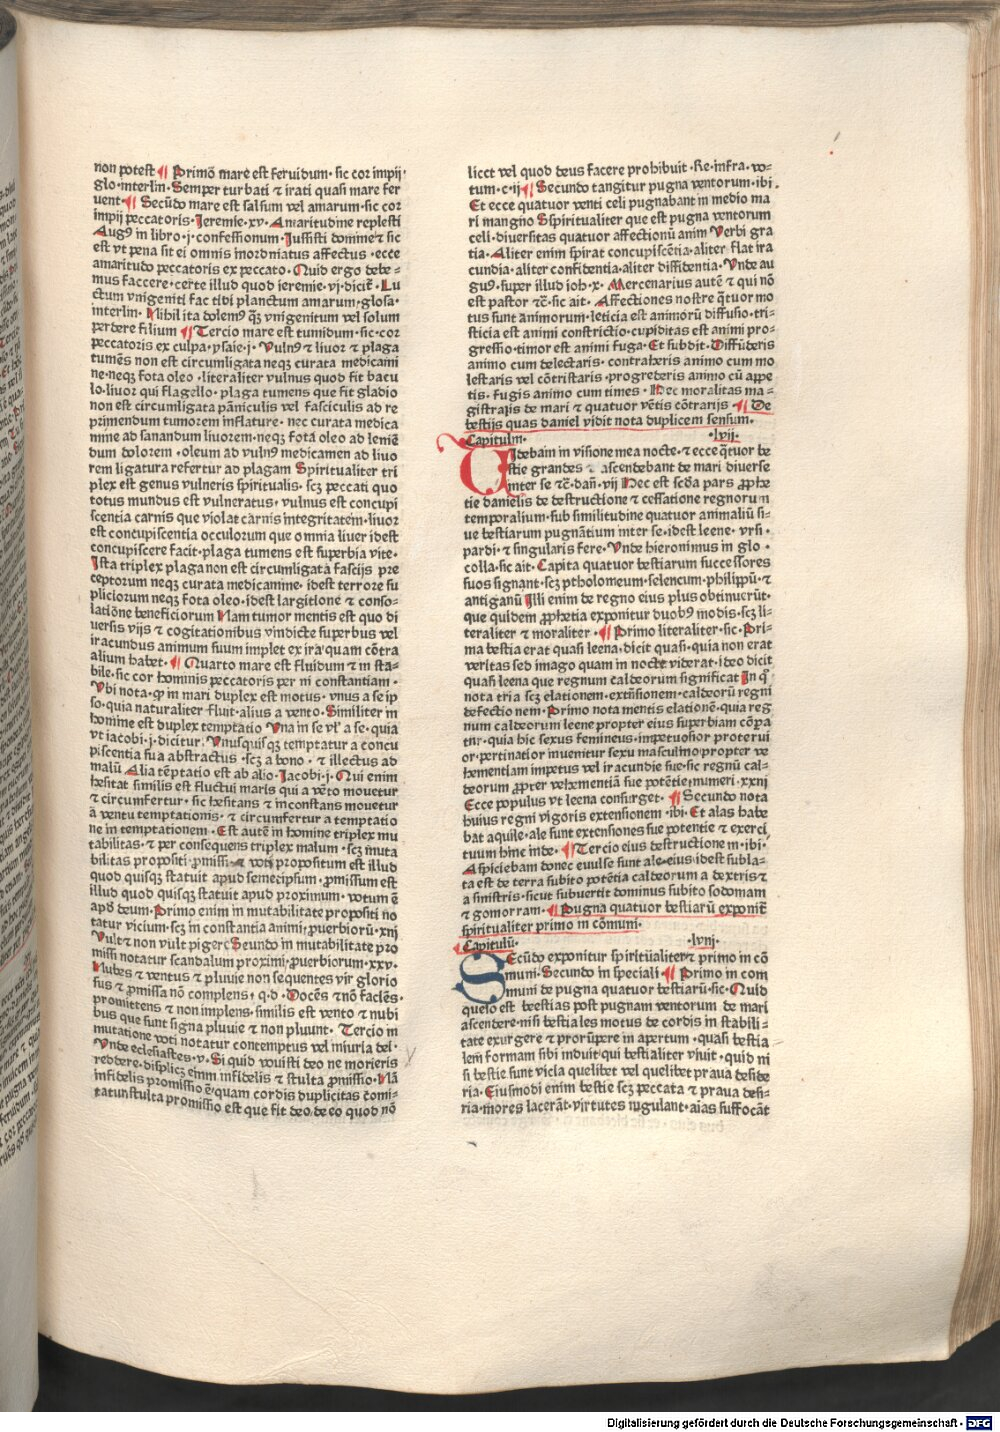 non potest ¶ Primo mare est feruidum · sic cor impij ·
glo · interlin · Semper turbati ⁊ irati quasi mare fer
uent · ¶ Secūdo mare est salsum vel amarum · sic cor
impij peccatoris · Jeremie · xv · Amaritudine replesti
Augꝰ in libro · j · confessionum · Jussisti domine ⁊ sic
est vt pena sit ei omnis inordinatus affectus · ecce
amaritudo peccatoris ex peccato · Quid ergo debe-
mus faccere · certe illud quod jeremie · vj · dicit᷑ · Lu
ctum vnigeniti fac tibi planctum amarum · glosa ·
interlin · Nihil ita dolemꝰ qꝫ vnigenitum vel solum
perdere filium ¶ Tercio mare est tumidum · sic cor
peccatoris ex culpa · ysaie · j · Vulnꝰ ⁊ liuor ⁊ plaga
tumēs non est circumligata neqꝫ curata medicami
ne · neqꝫ fota oleo · literaliter vulnus quod fit bacu
lo · liuor qui flagello · plaga tumens que fit gladio
non est circumligata pāniculis vel fasciculis ad re
primendum tumorem inflature · nec curata medica
mine ad sanandum liuorem · neqꝫ fota oleo ad leniē
dum dolorem · oleum ad vulnꝰ medicamen ad liuo
rem ligatura refertur ad plagam Spiritualiter tri
plex est genus vulneris spiritualis · scꝫ peccati quo
totus mundus est vulneratus · vulnus est concupi
scentia carnis que violat carnis integritatem · liuor
est concupiscentia occulorum que omnia liuer idest
concupiscere facit · plaga tumens est superbia vite ·
Ista triplex plaga non est circumligata fascijs pre
ceptorum neqꝫ curata medicamine · idest terrore su
pliciorum neqꝫ fota oleo · idest largitione ⁊ conso-
latiōne beneficiorum Nam tumor mentis est quo di
uersis vijs ⁊ cogitationibus vindicte superbus vel
iracundus animum suum implet ex ira quam cōtra
alium habet · ¶ Quarto mare est fluidum ⁊ in sta-
bile · sic cor hominis peccatoris per ni constantiam ·
Vbi nota · ꝙ in mari duplex est motus · vnus a se ip
so · quia naturaliter fluit · alius a vento · Similiter in
homine est duplex temptatio Vna in se vl' a se · quia
vt iacobi · j · dicitur · Vnusquisqꝫ temptatur a concu
piscentia sua abstractus · scꝫ a bono · ⁊ illectus ad
malū Alia tēptatio est ab alio · Jacobi · j · Qui enim
hesitat similis est fluctui maris qui a vēto mouetur
⁊ circumfertur · sic hesitans ⁊ inconstans mouetur
a ventu temptationis · ⁊ circumfertur a temptatio
ne in temptationem · Est autē in homine triplex mu
tabilitas · ⁊ per consequens triplex malum · scꝫ muta
bilitas propositi · ꝓmissi · ⁊ voti propositum est illud
quod quisqꝫ statuit apud semetipsum · ꝓmissum est
illud quod quisqꝫ statuit apud proximum · votum ē
apd̄ deum · Primo enim in mutabilitate propositi no
tatur vicium · scꝫ in constantia animi · ꝓuerbiorū · xiij
Vult ⁊ non vult piger Seundo in mutabilitate pro
missi notatur scandalum proximi · ꝓuerbiorum · xxv ·
Nubes ⁊ ventus ⁊ pluuie non sequentes vir glorio
sus ⁊ ꝓmissa nō complens · q · d · Docēs ⁊ nō faciēs ·
promittens ⁊ non implens · similis est vento ⁊ nubi
bus que sunt signa pluuie ⁊ non pluunt · Tercio in
mutatione voti notatur contemptus vel iniuria dei ·
Vnde eclesiastes · v · Si quid vouisti deo ne morieris
reddere · displicꝫ enim infidelis ⁊ stulta ꝓmissio · Nā
infidelis promissio ē quam cordis duplicitas comi-
tatur stulta promissio est que fit deo · de eo quod nō
licet vel quod deus facere prohibuit · Re · infra · vo-
tum · c · ij ¶ Secundo tangitur pugna ventorum · ibi ·
Et ecce quatuor venti celi pugnabant in medio ma
ri mangno Sspiritualiter que est pugna ventorum
celi · diuersitas quatuor affectionū anim Verbi gra
tia · Aliter enim spirat concupiscētia · aliter flat ira
cundia · aliter confidentia · aliter diffidentia · Vnde au
guꝰ · super illud ioh · x · Mercenarius autē ⁊ qui nō
est pastor ⁊c̄ · sic ait · Affectiones nostre q̄tuor mo
tus sunt animorum · leticia est animorū diffusio · tri-
sticia est animi constrictio · cupiditas est animi pro-
gressio · timor est animi fuga · Et subdit · Diffūderis
animo cum delectaris · contraheris animo cum mo
lestaris vel cōtristaris · progrederis animo cū appe
tis · fugis animo cum times · Hec moralitas ma-
gistralis de mari ⁊ quatuor vētis cōtrarijs ¶ De
bestijs quas daniel vidit nota duplicem sensum ·
Capitulm · · lvij ·
Uidebam in visione mea nocte · ⁊ ecce q̄tuor be
stie grandes ⁊ ascendebant de mari diuerse
inter se ⁊c̄ · dan̄ · vij Hec est scd̄a pars ꝓphe
tie danielis de destructione ⁊ cessatione regnorum
temporalium · sub similitudine quatuor animaliū si-
ue bestiarum pugnātium inter se · idest leene · vrsi ·
pardi · ⁊ singularis fere · Vnde hieronimus in glo ·
colla · sic ait · Capita quatuor bestiarum successores
suos signant · scꝫ ptholomeum · selencum · philippū · ⁊
antiganū Illi enim de regno eius plus obtinuerūt ·
que quidem ꝓphetia exponitur duobꝰ modis · scꝫ li-
teraliter ⁊ moraliter · ¶ Primo literaliter · sic · Pri-
ma bestia erat quasi leena · dicit quasi · quia non erat
veritas sed imago quam in nocte viderat · ideo dicit
quasi leena que regnum caldeorum significat In q°
nota tria scꝫ elationem · extēsionem · caldeorū regni
defectio nem · Primo nota mentis elationē · quia reg
num caldeorum leene propter eius superbiam cōpa
tnr · quia hic sexus femineus · impetuosior proterui
or · pertinatior inuenitur sexu masculino propter ve
hementiam impetus vel iracundie sue · sic regnū cal-
deorum ꝓpter vehementiā sue potētie · numeri · xxiij
Ecce populus vt leena consurget · ¶ Secundo nota
huius regni vigoris extensionem · ibi · Et alas habe
bat aquile · ale sunt extensiones sue potentie ⁊ exerci
tuum hinc inde · ¶ Tercio eius destructione m · ibi ·
Aspiciebam donec euulse sunt ale · eius · idest subla-
ta est de terra subito potētia caldeorum a dextris ⁊
a sinistris · sicut subuertit dominus subito sodomam
⁊ gomorram · ¶ Pugna quatuor bestiarū exponit᷑
spiritualiter primo in cōmuni ·
Capitulū · · lviij ·
SEcūdo exponitur spiritūaliter ⁊ primo in cō
muni · Secundo in speciali · ¶ Primo in com
muni de pugna quatuor bestiarū · sic · Quid
queso est beestias post pugnam ventorum de mari
ascendere · nisi bestia les motus de cordis in stabili-
tate exurgere ⁊ prorūpere in apertum · quasi bestia
lem̄ formam sibi induit qui bestialiter viuit · quid ni
si bestie sunt vicla quelibet vel quelibet praua deside
ria · Eiusmodi enim bestie scꝫ peccata ⁊ praua desi-
ria · mores lacerāt · virtutes iugulant · aīas suffocāt
Digitalisierung gefördert durch die Deutsche Forschungsgemeinschaft · DFG